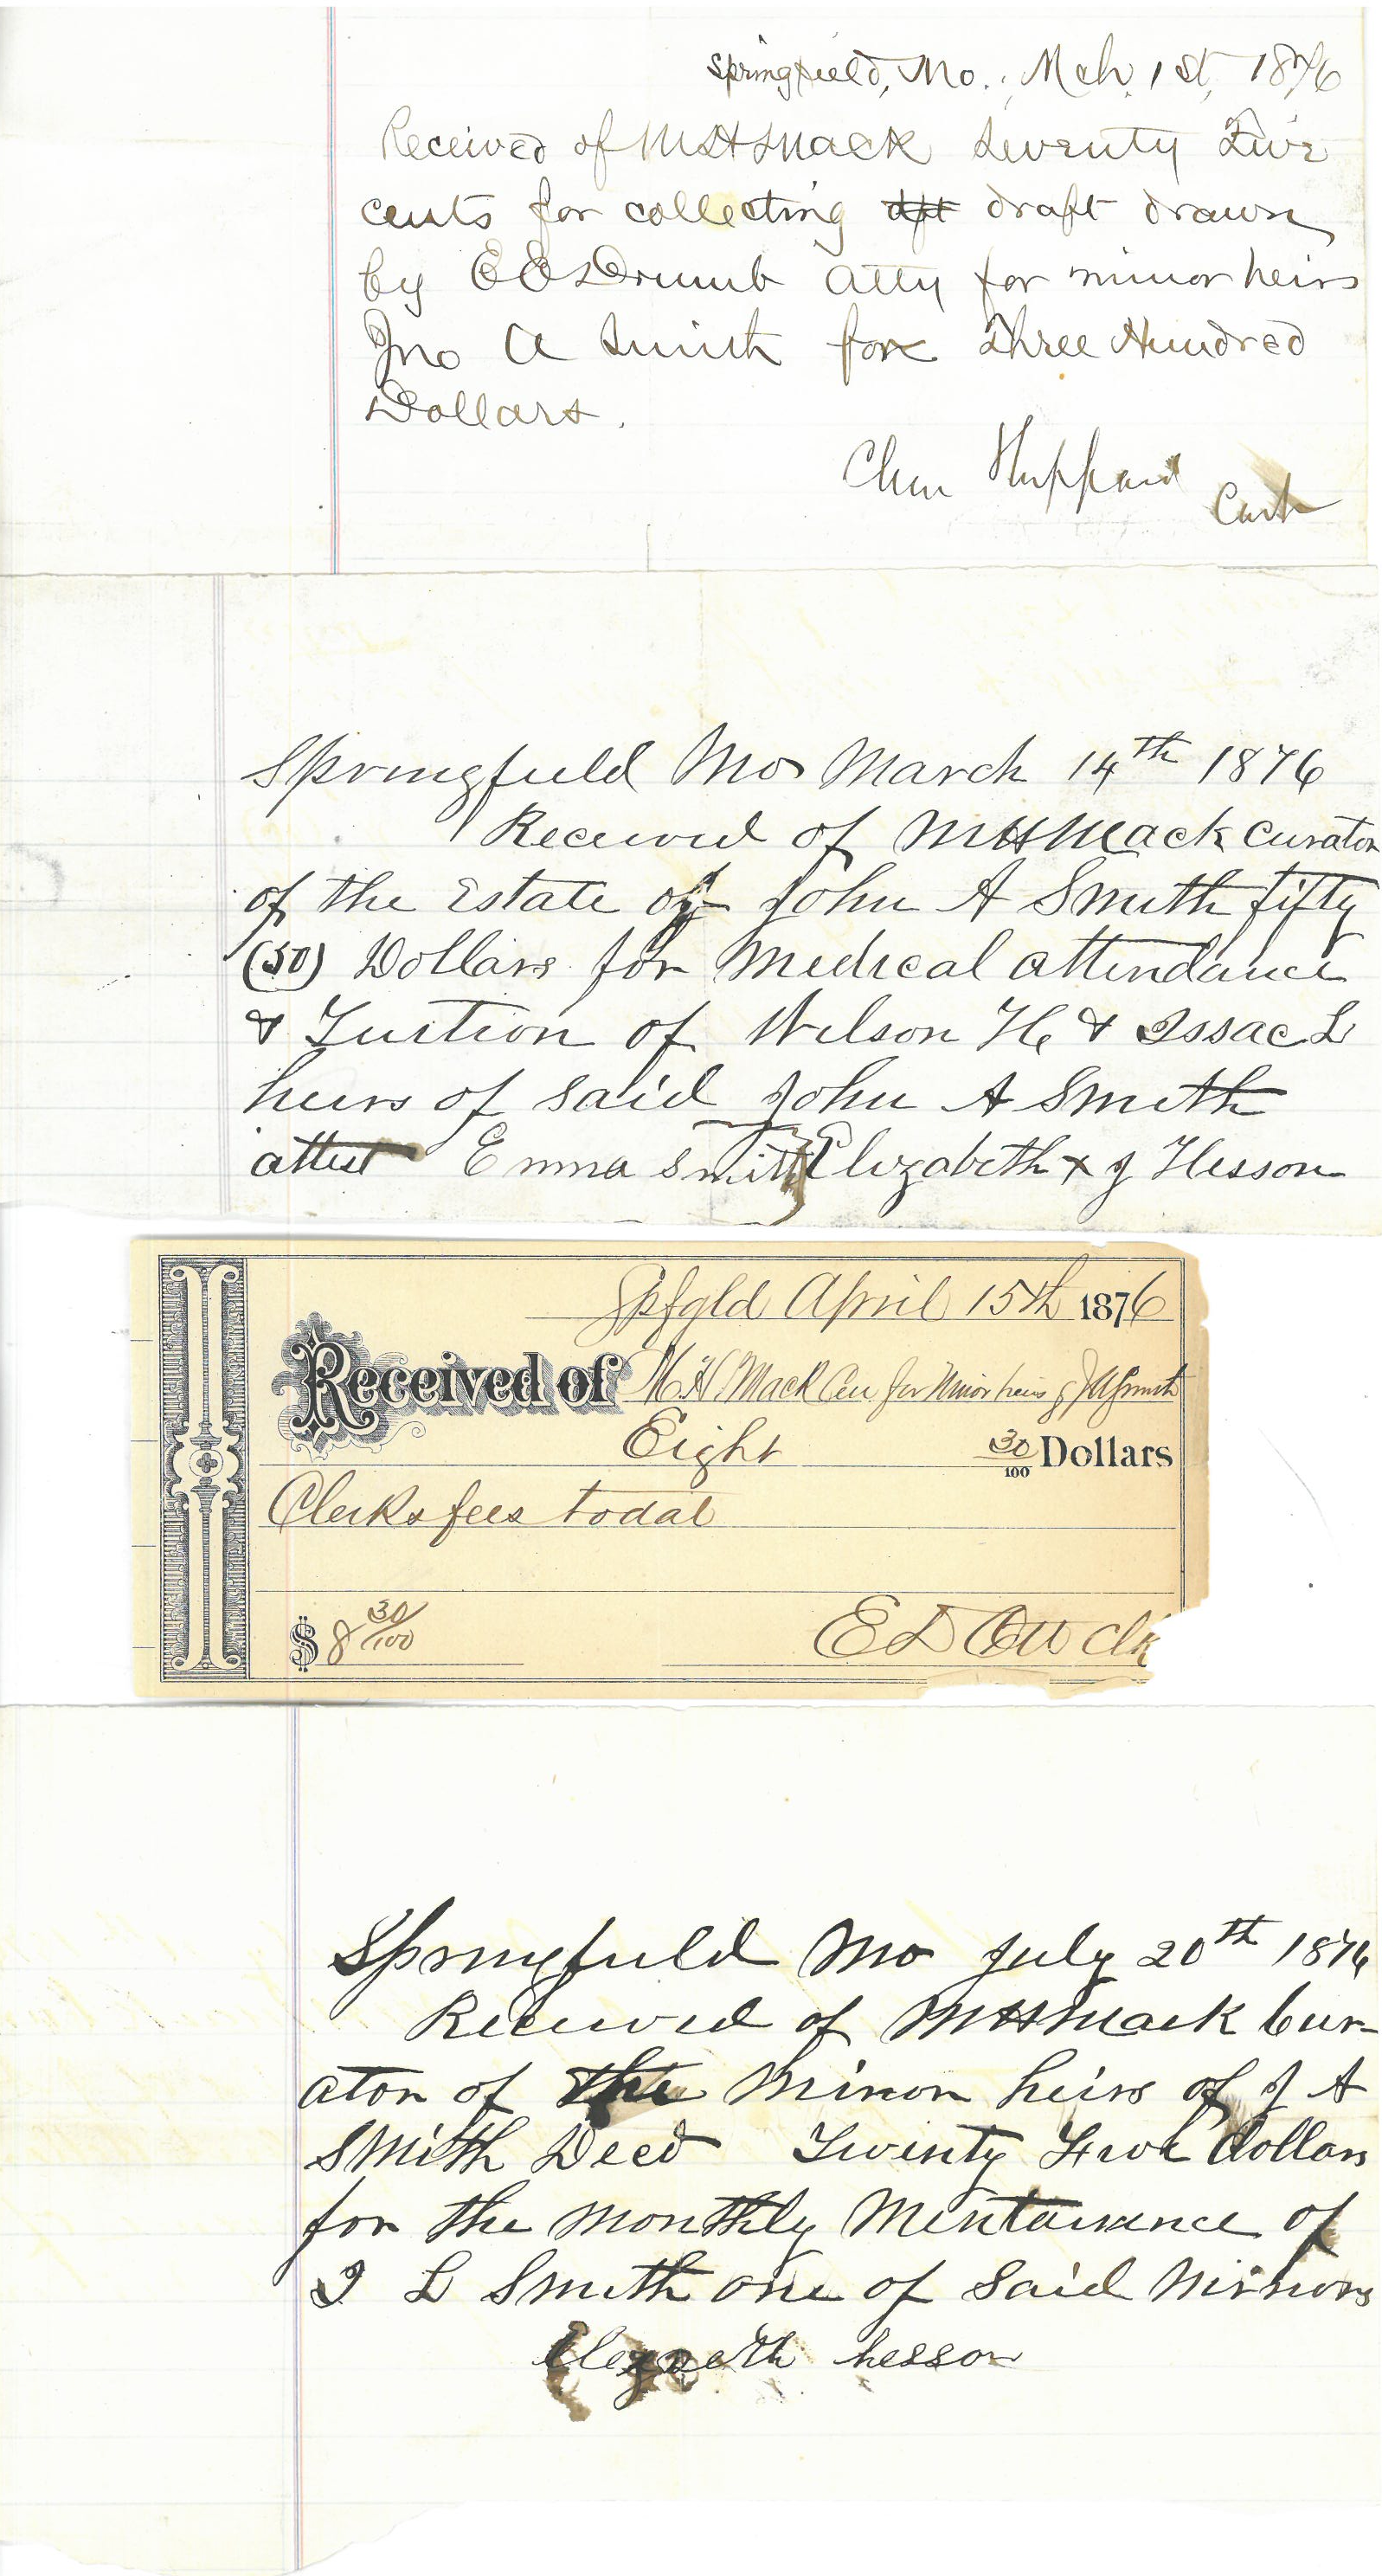 Springfield, Mo., Mch. 1st, 1876
Received of M H Mack Seventy Five
cents for collecting dft draft drawn
by E E Drumb Atty for minor heirs
Jno A Smith for Three Hundred
Dollars.
Chas Sheppard
Cash
Springfield Mo March 14th 1876
Received of M H Mack Curator
of the Estate of John A Smith fifty
(50) Dollars for Medical attendance
& Tuition of Wilson H & Issac L
heirs of said John A Smith
attest Emma Smith Elizabeth x J Hesson
Spfgld April 15th 1876
Received of M. H Mack Cu for Minor heirs of J A Smith
Eight 30/100 Dollars
Clerks fees todal
$ 8 30/100
E D Ott Clk
Springfield Mo July 20th 1876
Received of M H Mack Cur-
ator of the Minor heirs of J A
Smith Decd Twenty Five dollars
for the monthly Mentainance of
I L Smith one of said Minors
hesson